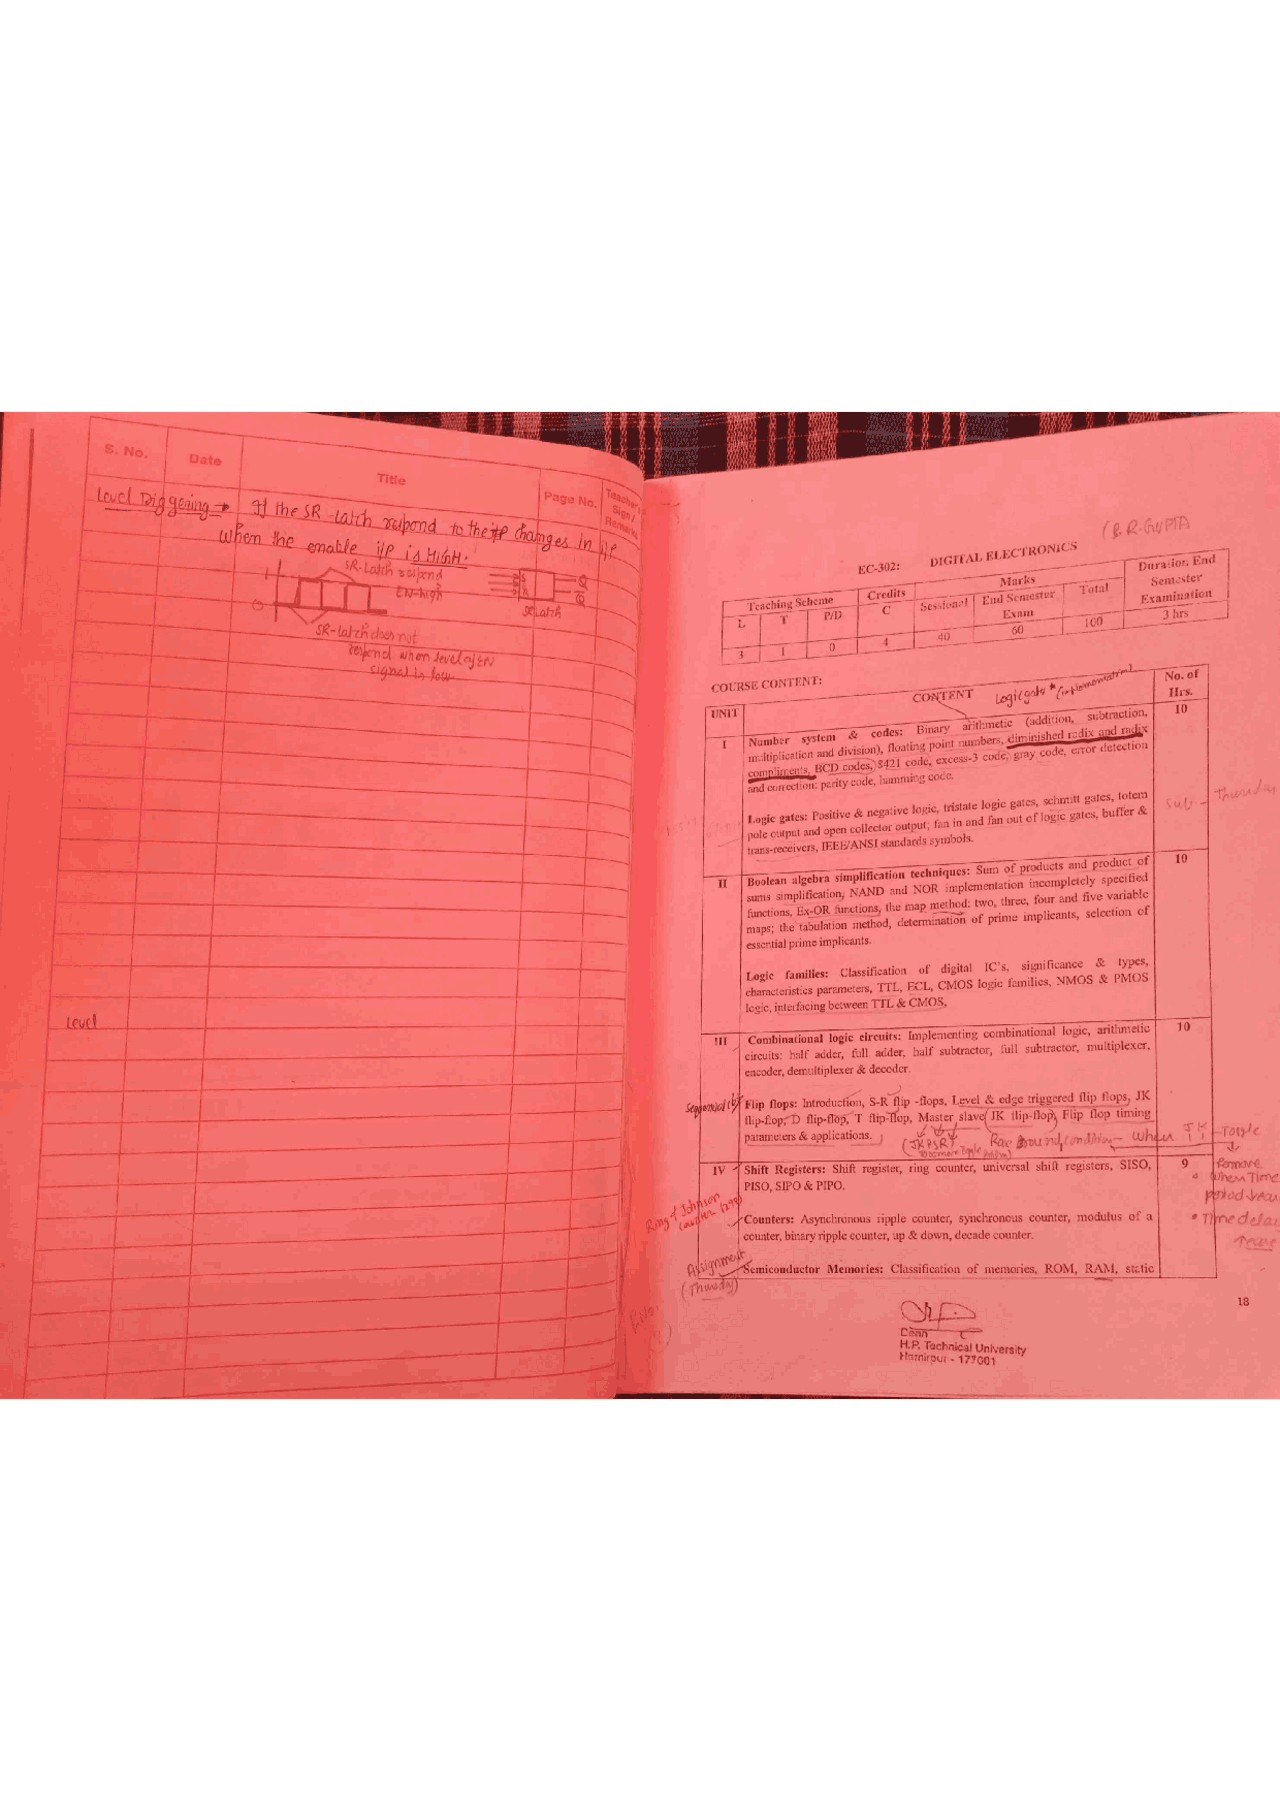 S. No.
Date
Title
Page No.
Teacher's
Sign /
Remarks
Level Diggening → If the SR-Latch respond to the changes in i/p
when the enable i/p is HIGH.
1
SR-Latch respond
EN-high
0
S
R
Q
Q̅
SR Latch
SR-Latch does not
respond when level of EN
signal is low
Level
(B.R-GUPTA
EC-302:
DIGITAL ELECTRONICS
Teaching Scheme
Credits
Marks
Duration End
Semester
Examination
L
T
P/D
C
Sessional
End Semester
Exam
Total
3
1
0
4
40
60
100
3 hrs
COURSE CONTENT:
UNIT
CONTENT
Logic gate * (implementation)
No. of
Hrs.
I
Number system & codes: Binary arithmetic (addition, subtraction,
multiplication and division), floating point numbers, diminished radix and radix
compliments, BCD codes, 8421 code, excess-3 code, gray code, error detection
and correction: parity code, hamming code.
10
Logic gates: Positive & negative logic, tristate logic gates, schmitt gates, totem
pole output and open collector output; fan in and fan out of logic gates, buffer &
trans-receivers, IEEE/ANSI standards symbols.
Sub - Thursday
II
Boolean algebra simplification techniques: Sum of products and product of
sums simplification, NAND and NOR implementation incompletely specified
functions, Ex-OR functions, the map method: two, three, four and five variable
maps; the tabulation method, determination of prime implicants, selection of
essential prime implicants.
10
Logic families: Classification of digital IC's, significance & types,
characteristics parameters, TTL, ECL, CMOS logic families, NMOS & PMOS
logic, interfacing between TTL & CMOS.
III
Combinational logic circuits: Implementing combinational logic, arithmetic
circuits: half adder, full adder, half subtractor, full subtractor, multiplexer,
encoder, demultiplexer & decoder.
10
Flip flops: Introduction, S-R flip -flops, Level & edge triggered flip flops, JK
flip-flop, D flip-flop, T flip-flop, Master slave JK flip-flop, Flip flop timing
parameters & applications.
(JK & SR)
Race Around condition - when
J K
1 1
- Toggle
Remove
• When Time
• Time delay
IV
Shift Registers: Shift register, ring counter, universal shift registers, SISO,
PISO, SIPO & PIPO.
9
Ring & Johnson
counter (298)
Counters: Asynchronous ripple counter, synchronous counter, modulus of a
counter, binary ripple counter, up & down, decade counter.
Assignment
(Thursday)
Semiconductor Memories: Classification of memories, ROM, RAM, static
18
Dean
H.P. Technical University
Hamirpur - 177001